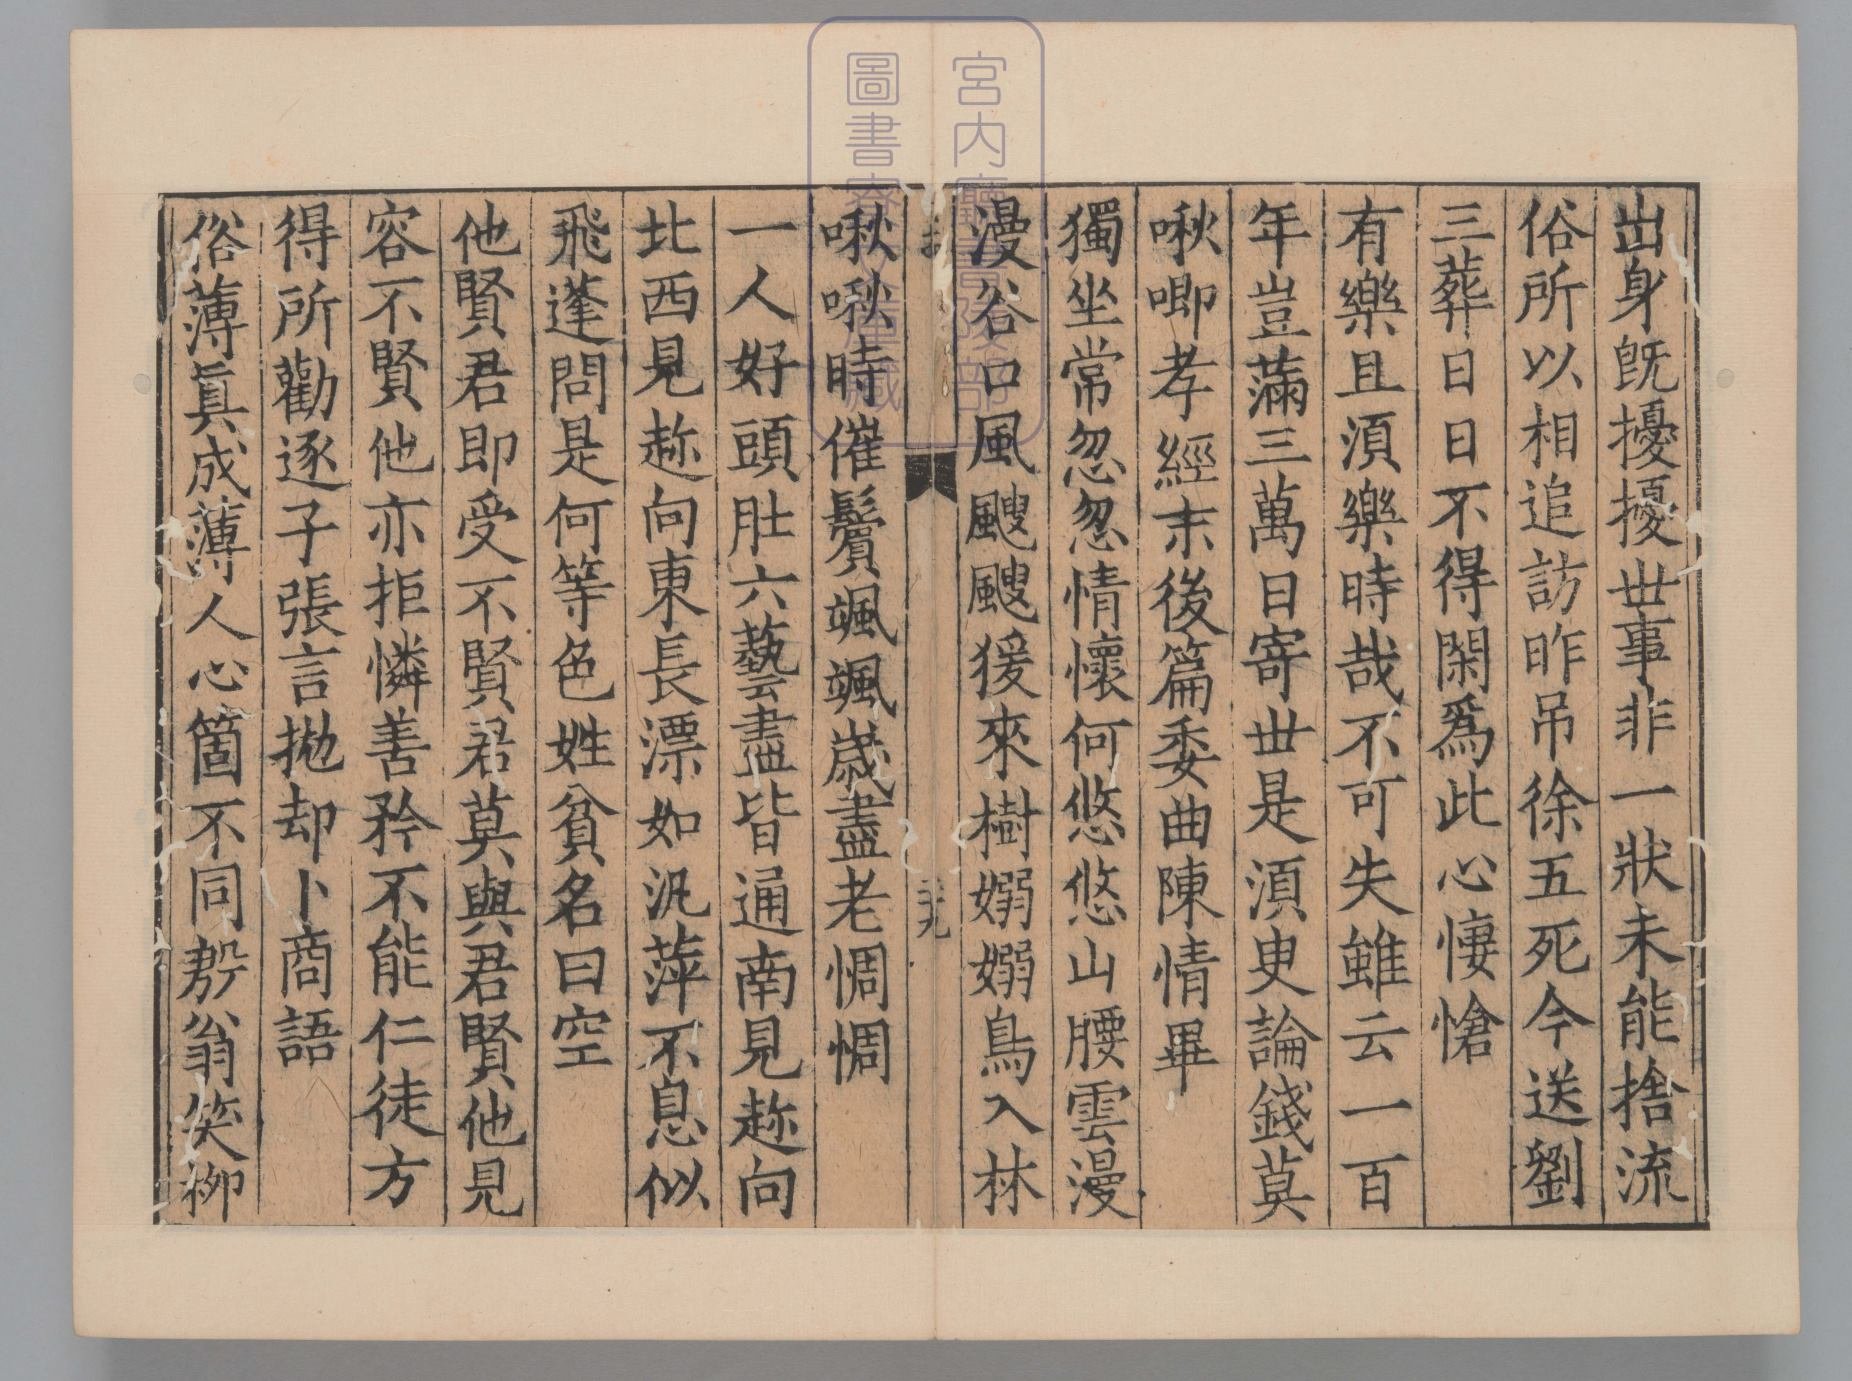 出身既擾擾世事非一狀未能捨流
俗所以相追訪昨吊徐五死今送劉
三葬日日不得閑爲此心悽愴
有樂且須樂時哉不可失雖云一百
年豈滿三萬日寄世是須臾論錢莫
啾唧孝經末後篇委曲陳情畢
獨坐常忽忽情懷何悠悠山腰雲漫
漫谷口風颼颼猨來樹嫋嫋鳥入林
啾啾時催鬢颯颯歲盡老惆惆
一人好頭肚六藝盡皆通南見趂向
北西見趂向東長漂如汎萍不息似
飛蓬問是何等色姓貧名曰空
他賢君即受不賢君莫與君賢他見
容不賢他亦拒憐善矜不能仁徒方
得所勸逐子張言拋却卜商語
俗薄眞成薄人心箇不同殷翁笑柳
宮内廳書陵部
圖書寮文庫藏